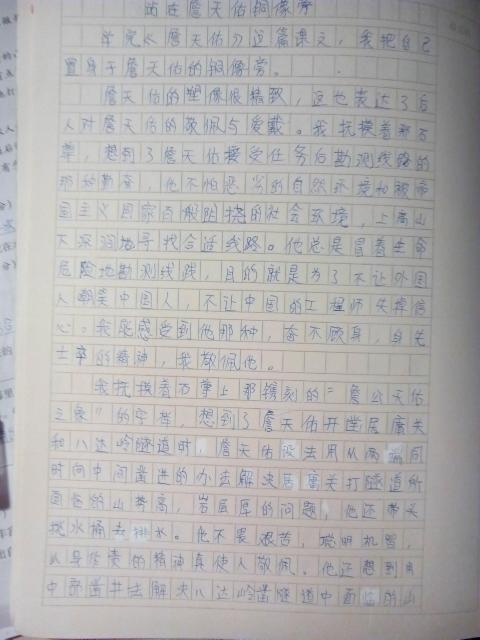 站在詹天佑铜像旁
学完《詹天佑》这篇课文，我把自己
置身于詹天佑的铜像旁。
詹天佑的塑像很精致，这也表达了后
人对詹天佑的敬佩与爱戴。我抚摸着那石
草，想到了詹天佑接受任务后勘测线路的
那种勤奋，他不怕恶劣的自然环境和被帝
国主义国家百般阻挠的社会环境，上高山
下深涧地寻找合适线路。他总是冒着生命
危险地勘测线践，目的就是为了不让外国
人嘲笑中国人，不让中国的工程师失掉信
心。我能感受到他那种，奋不顾身，身先
士卒的精神，我敬佩他。
我抚摸着石草上那镌刻的"詹公天佑
之象"的字样，想到了詹天佑开凿居庸关
和八达岭隧道时，詹天佑设法用从两端同
时向中间凿进的办法解决居庸关打隧道所
面临的山势高，岩层厚的问题，他还带头
挑水桶去排水。他不畏艰苦，聪明机智，
以身作责的精神真使人敬佩。他还想到用
中部凿井法解决八达岭凿隧道中面临的山